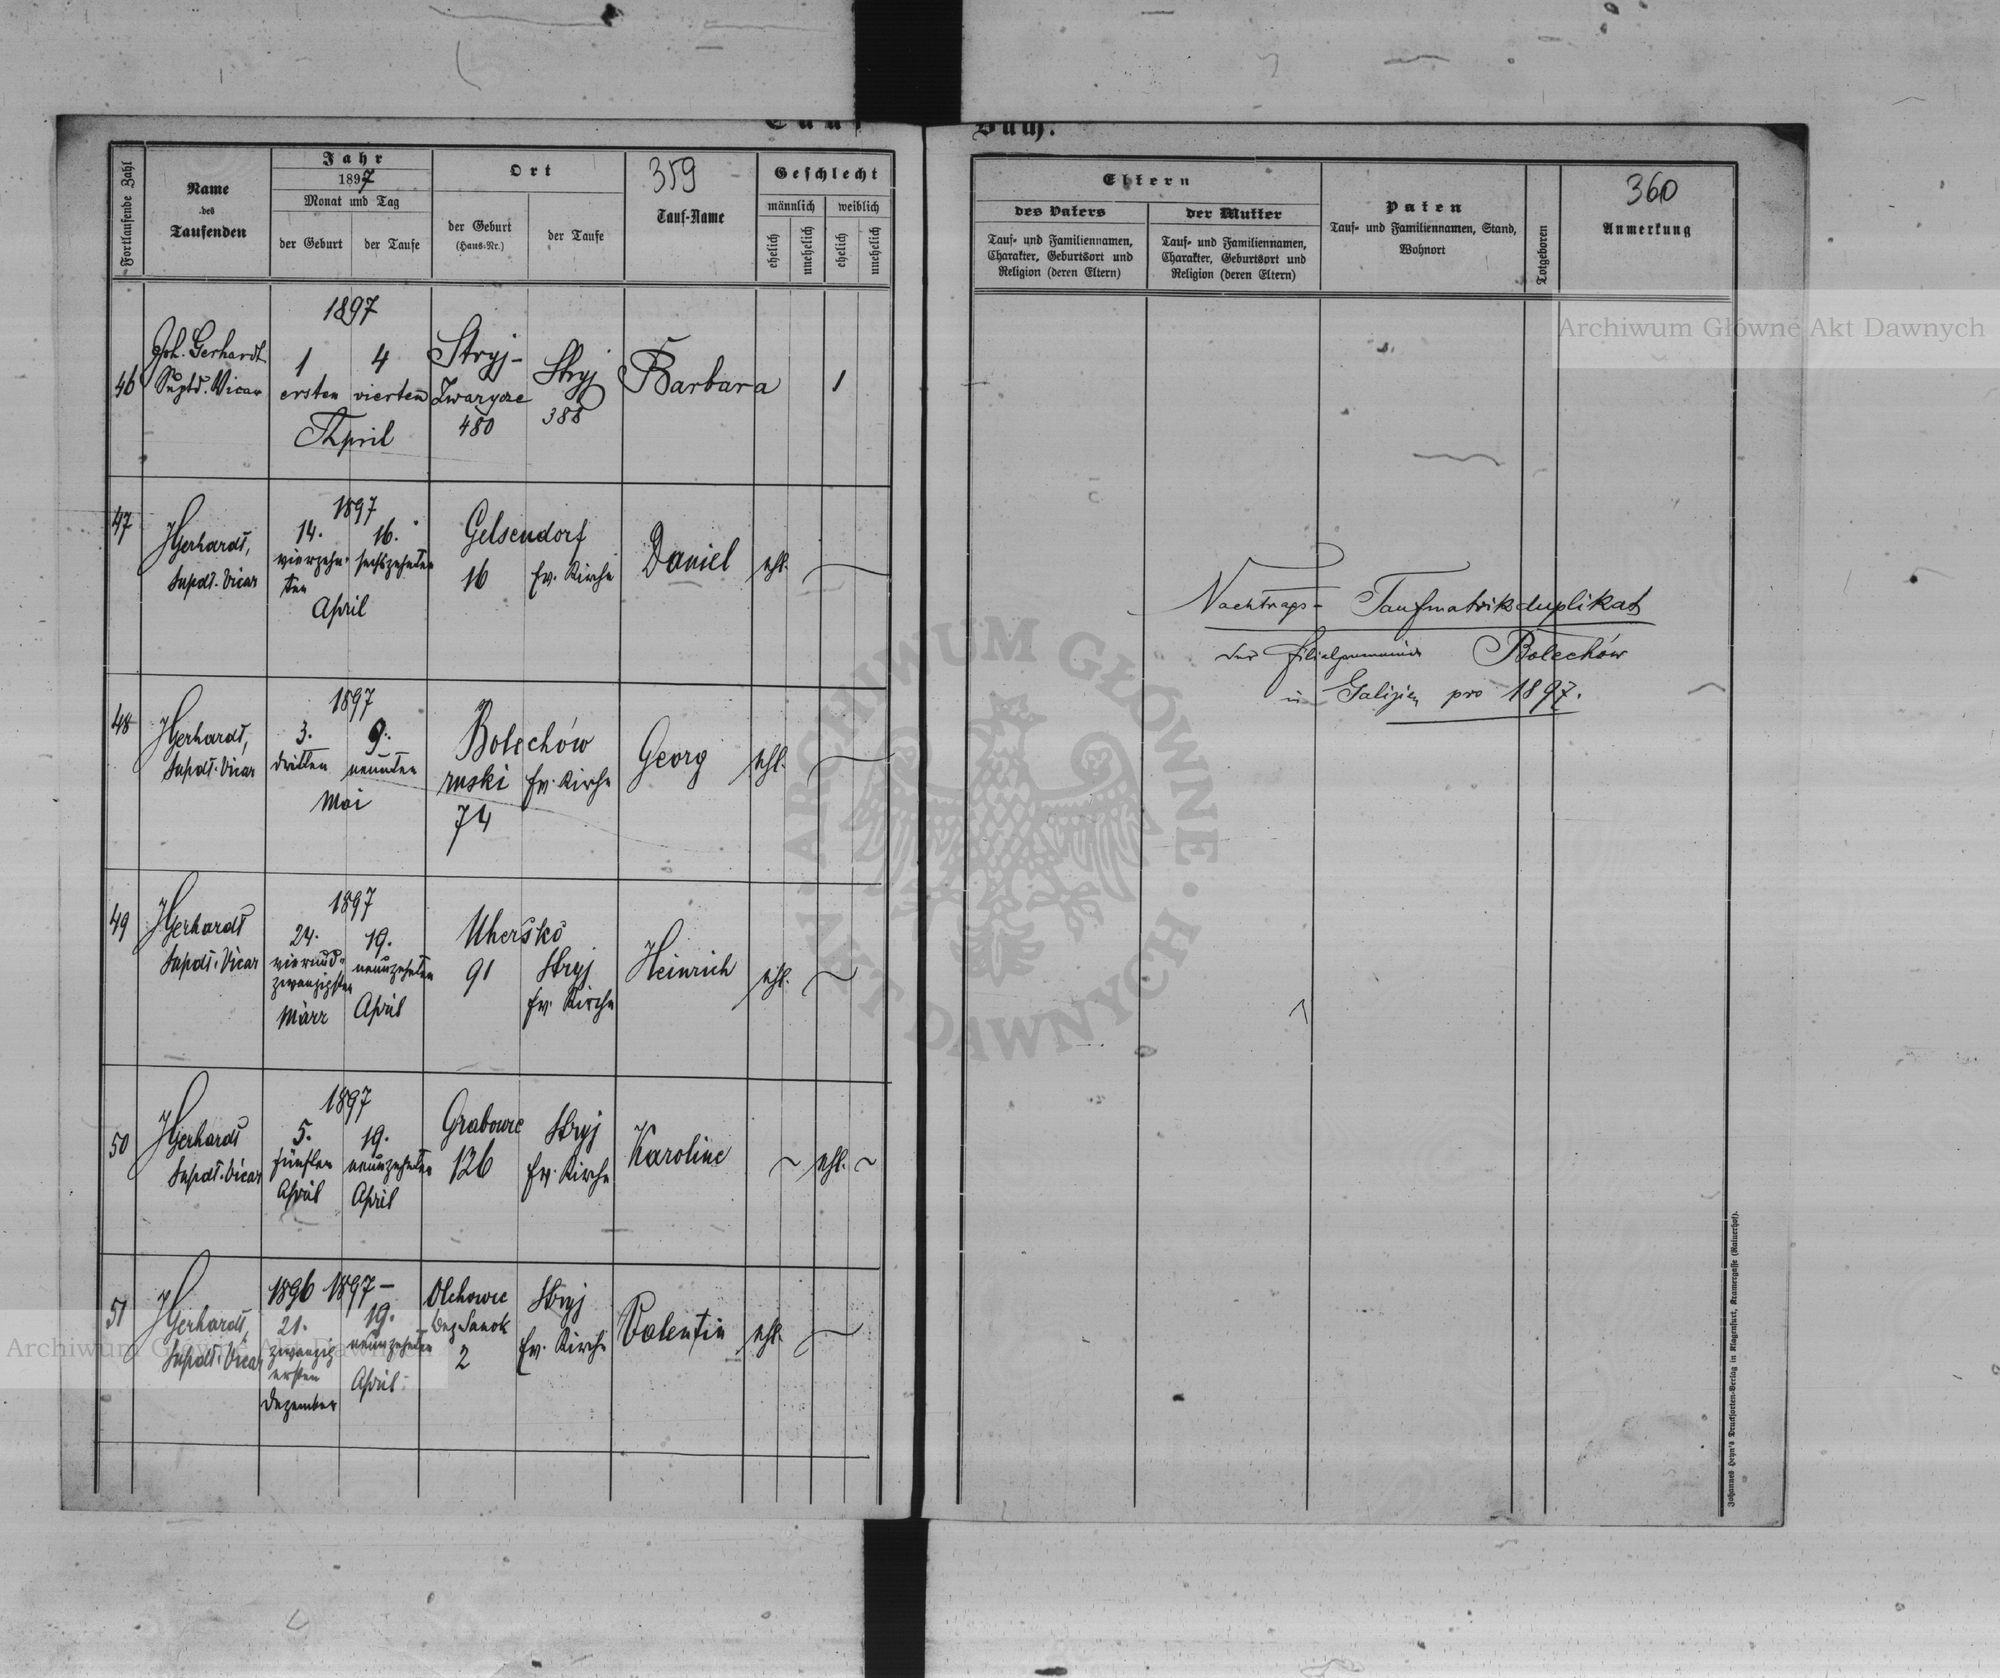 Tauf
Buch.
Fortlaufende Zahl
Name
des
Taufenden
Jahr
1897
Monat und Tag
der Geburt
der Taufe
Ort
der Geburt
(Haus-Nr.)
der Taufe
359
Tauf-Name
Geschlecht
männlich
weiblich
ehelich
unehelich
ehelich
unehelich
46
Joh. Gerhardt
Suptd. Vicar
1897
1
ersten
4
vierten
April
Stryj-
Zwarycze
480
Stryj
388
Barbara
1
47
JGerhardt,
Supdt. Vicar
1897
14.
vierzehn-
ten
16.
sechszehnten
April
Gelsendorf
16
ev. Kirche
Daniel
ehl.
48
JGerhardt,
Supdt. Vicar
1897
3.
dritten
9.
neunten
Mai
Bolechów
ruski
74
ev. Kirche
Georg
ehl.
49
JGerhardt
Supdt. Vicar
1897
24.
vierund-
zwanzigsten
März
19.
neunzehnten
April
Uhersko
91
Stryj
ev. Kirche
Heinrich
ehl.
50
JGerhardt
Supdt. Vicar
1897
5.
fünften
April
19.
neunzehnten
April
Grabowce
126
Stryj
ev. Kirche
Karoline
ehl.
51
JGerhardt,
Supdt. Vicar
1896 1897-
21.
zwanzig
ersten
Dezember
19.
neunzehnten
April
Olchowce
bez. Sanok
2
Stryj
ev. Kirche
Valentin
ehl.
Eltern
des Vaters
Tauf- und Familiennamen,
Charakter, Geburtsort und
Religion (deren Eltern)
der Mutter
Tauf- und Familiennamen,
Charakter, Geburtsort und
Religion (deren Eltern)
Paten
Tauf- und Familiennamen, Stand,
Wohnort
Totgeboren
360
Anmerkung
Nachtrags- Taufmatrikduplikat
der Filialgemeinde Bolechów
in Galizien pro 1897.
Johannes Heyn's Drucksorten-Verlag in Klagenfurt, Kramergasse (Rainerhof).
Archiwum Główne Akt Dawnych
Archiwum Główne Akt Dawnych
ARCHIWUM GŁÓWNE · AKT DAWNYCH ·